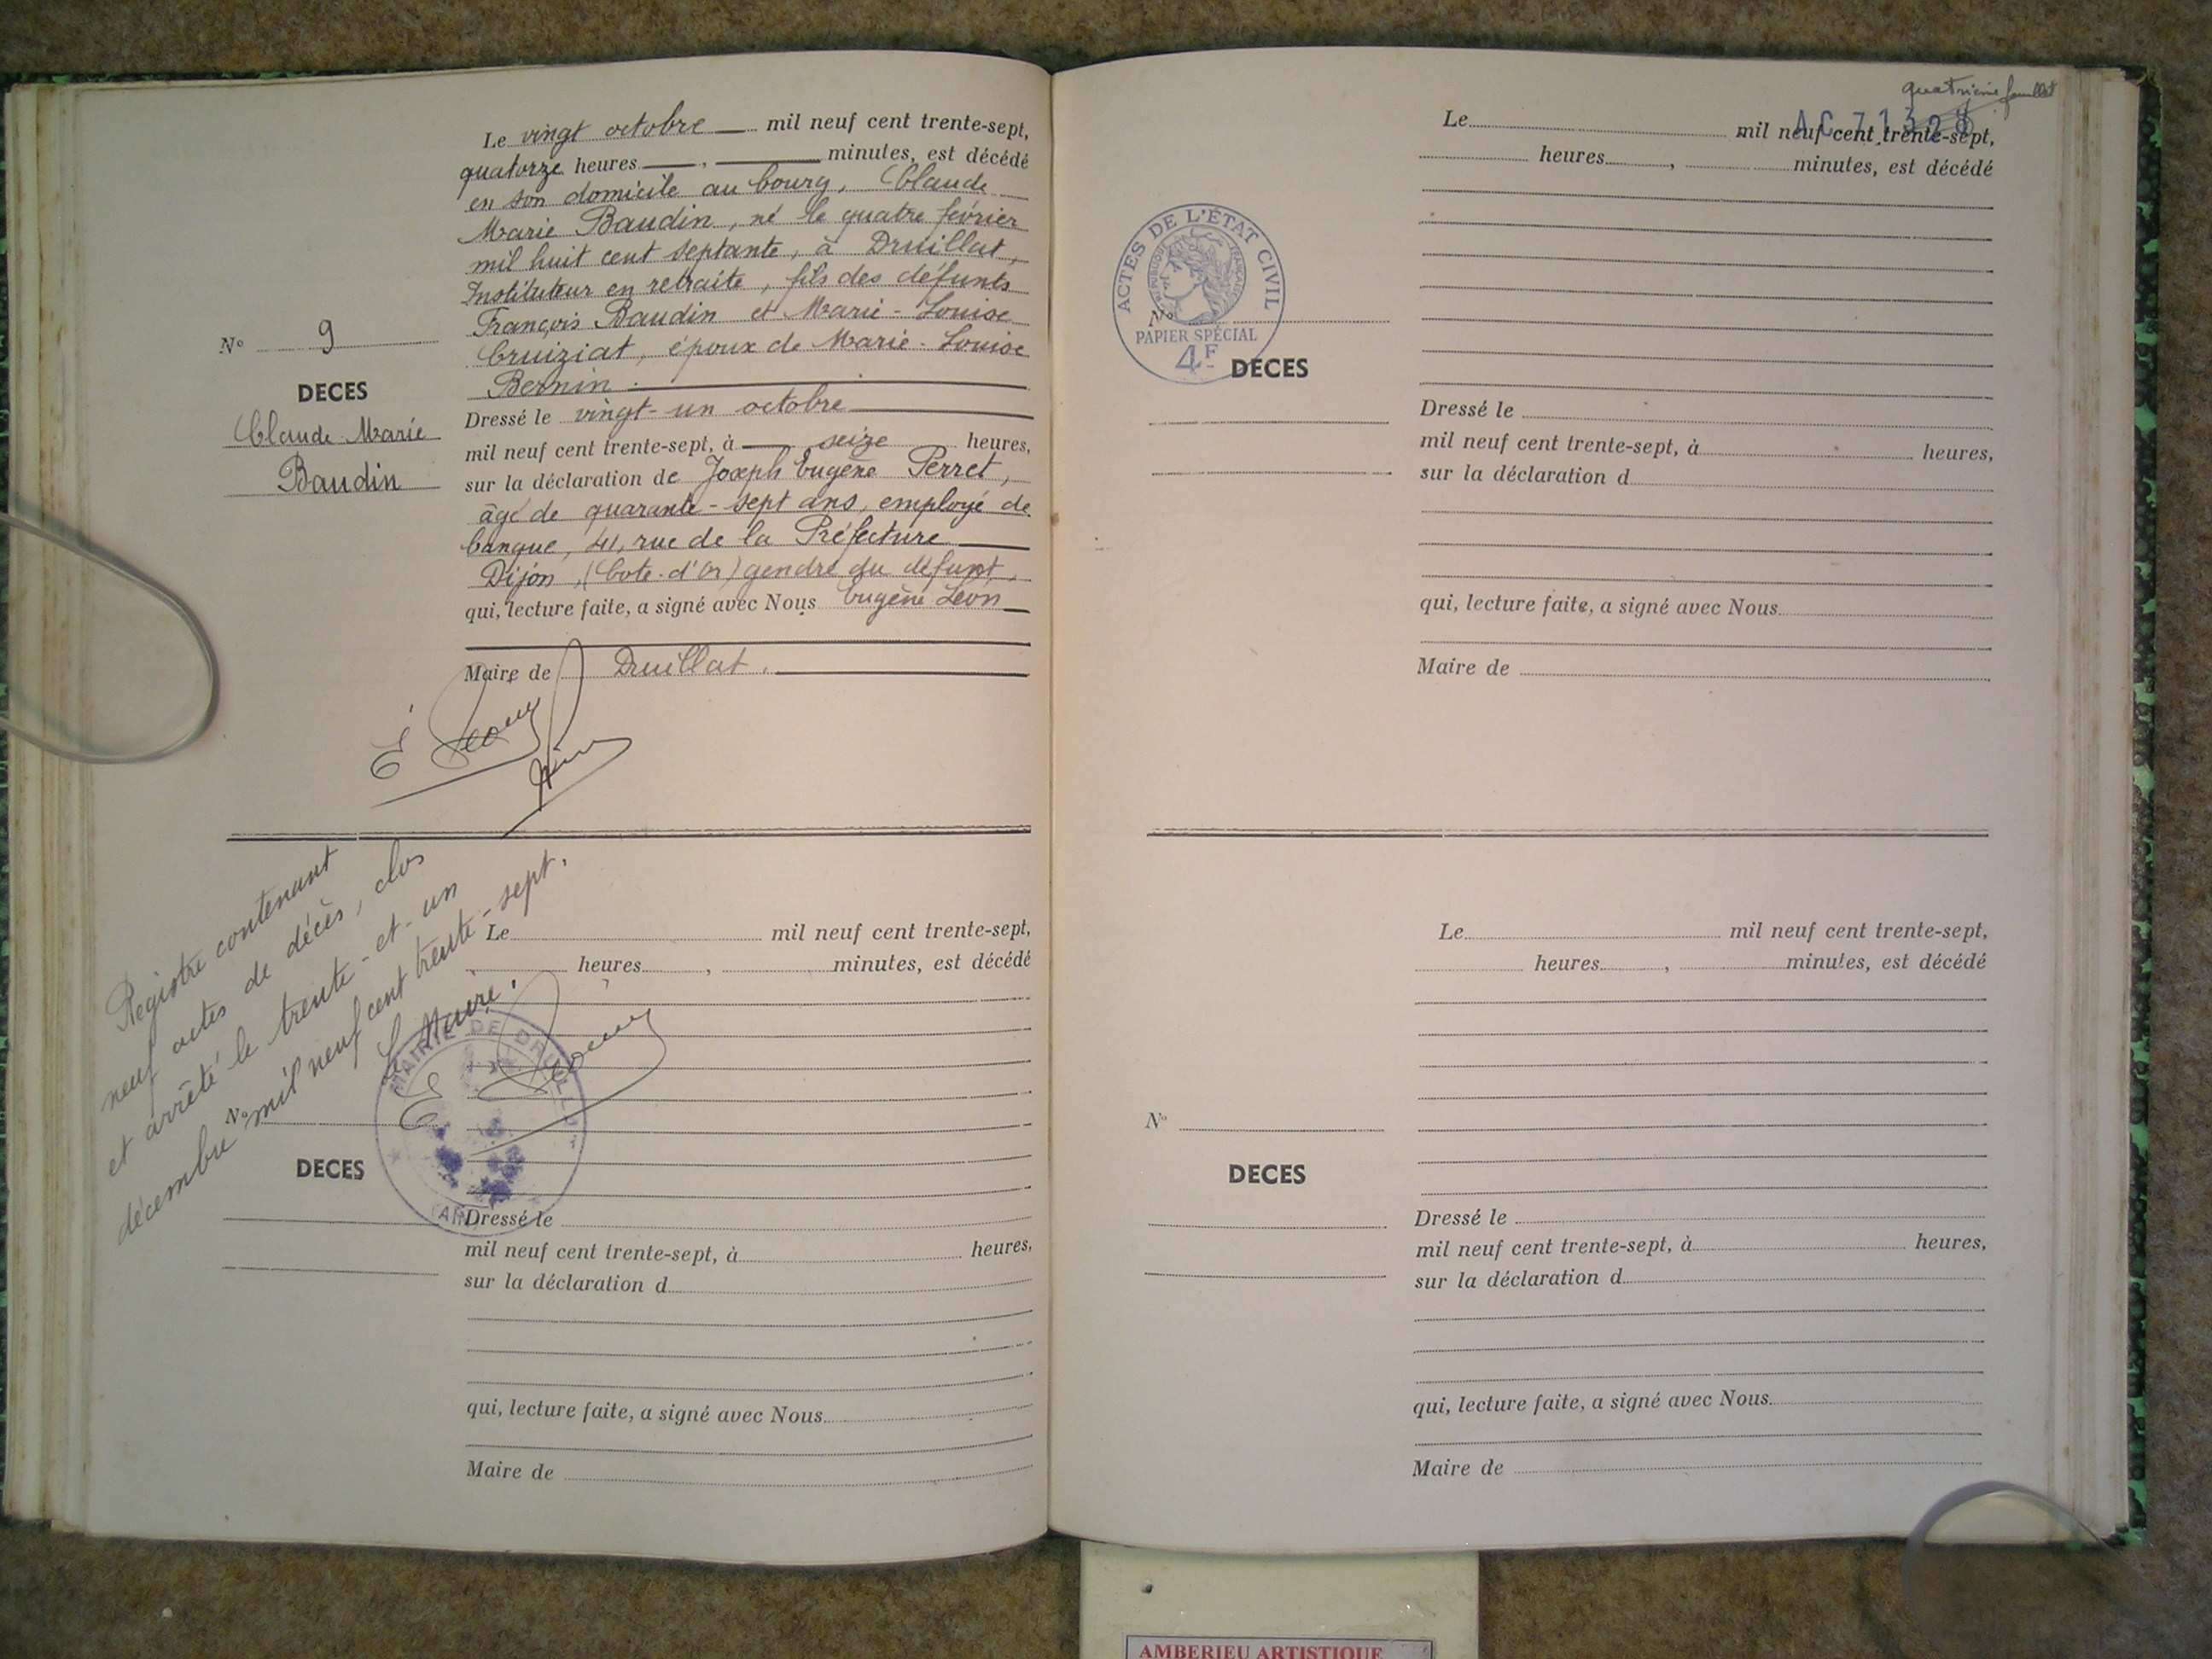 Le vingt octobre mil neuf cent trente-sept,
quatorze heures , minutes, est décédé
en son domicile au bourg, Claude
Marie Baudin, né le quatre février
mil huit cent septante, à Druillat,
Instituteur en retraite, fils des défunts
François Baudin et Marie-Louise
Cruiziat, époux de Marie-Louise
Bernin.
N° 9
DECES
Claude Marie
Baudin
Dressé le vingt-un octobre
mil neuf cent trente-sept, à seize heures,
sur la déclaration de Joseph Eugène Perret,
âgé de quarante-sept ans, employé de
banque, 41, rue de la Préfecture
Dijon, (Côte-d'Or) gendre du défunt,
qui, lecture faite, a signé avec Nous Eugène Léon
Maire de Druillat.
Registre contenant
neuf actes de décès, clos
et arrêté le trente-et-un
décembre mil neuf cent trente-sept.
Le Maire.
MAIRIE DE DRUILLAT
AIN
Le mil neuf cent trente-sept,
heures , minutes, est décédé
N°
DECES
Dressé le
mil neuf cent trente-sept, à heures,
sur la déclaration d
qui, lecture faite, a signé avec Nous
Maire de
quatrième feuillet
Le mil neuf cent trente-sept,
heures , minutes, est décédé
ACTES DE L'ÉTAT CIVIL
RÉPUBLIQUE FRANÇAISE
PAPIER SPÉCIAL
4F
N°
DECES
Dressé le
mil neuf cent trente-sept, à heures,
sur la déclaration d
qui, lecture faite, a signé avec Nous
Maire de
Le mil neuf cent trente-sept,
heures , minutes, est décédé
N°
DECES
Dressé le
mil neuf cent trente-sept, à heures,
sur la déclaration d
qui, lecture faite, a signé avec Nous
Maire de
AMBERIEU ARTISTIQUE